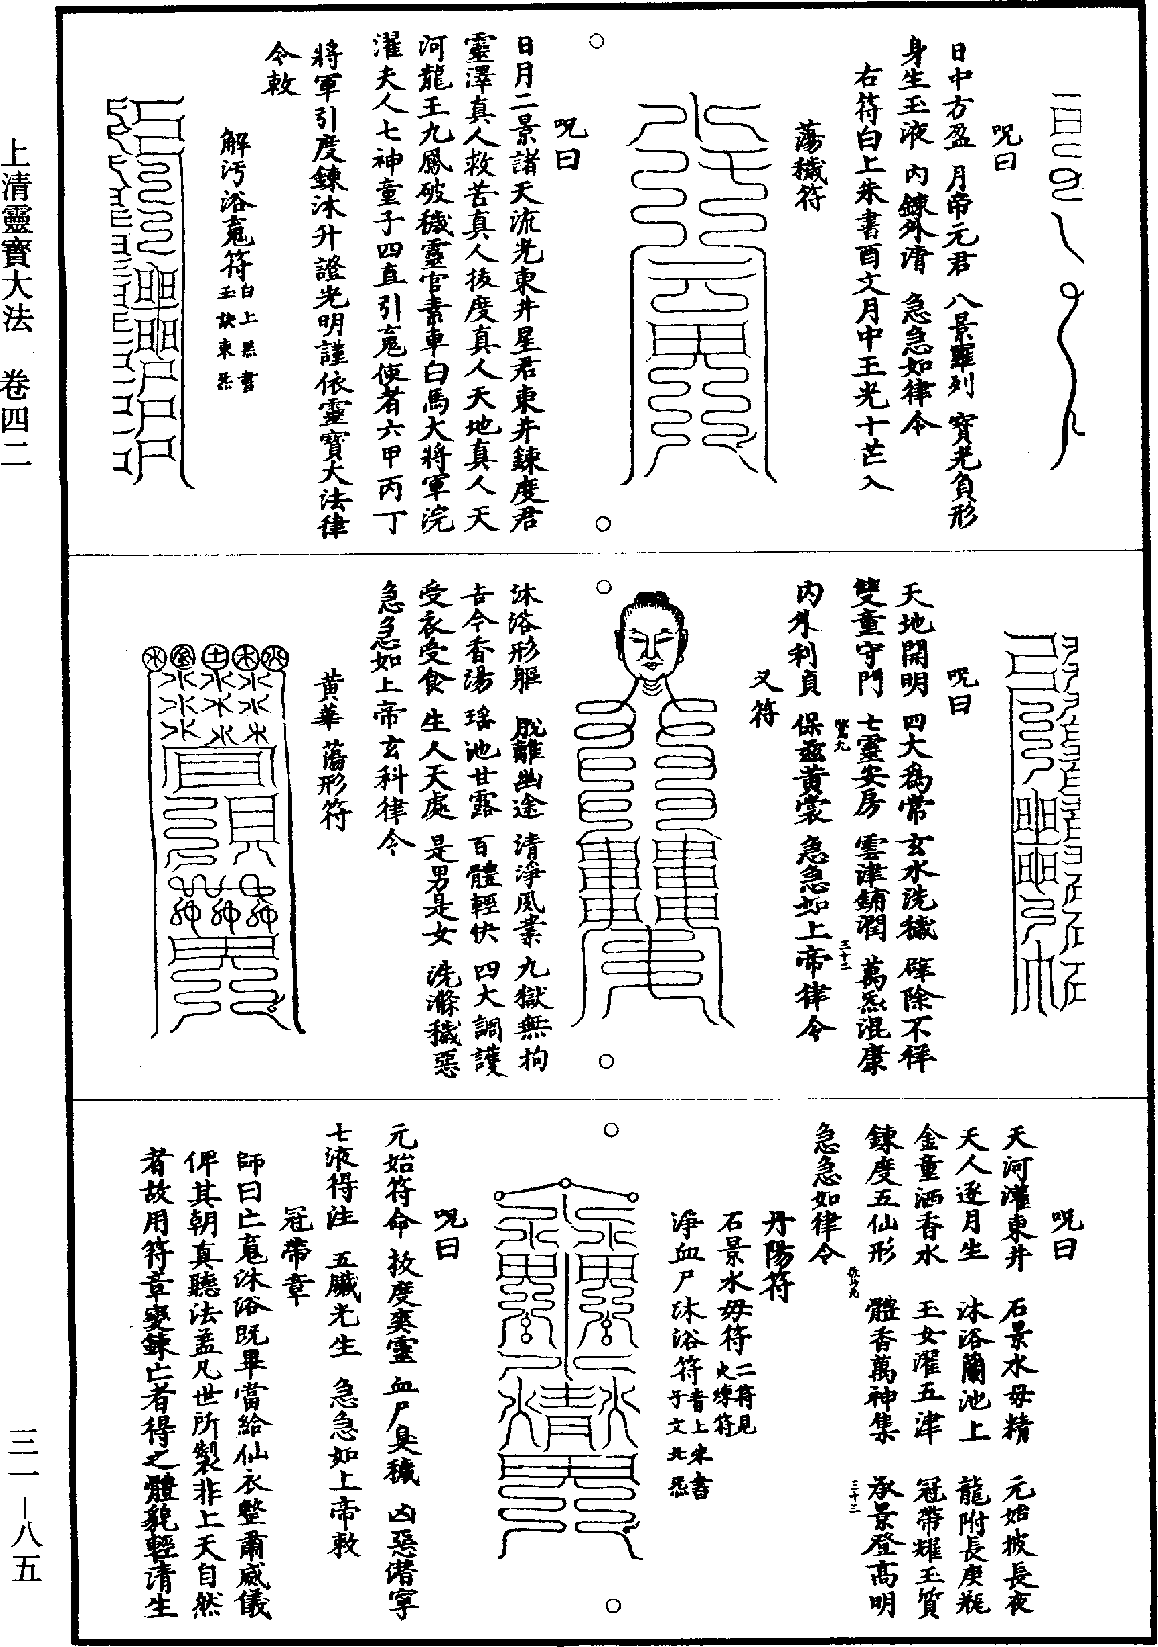 上清靈寶大法　卷四二
三一—八五
呪曰
日中方盈　月帝元君　八景羅列　寶光負形
身生玉液　內鍊外清　急急如律令
右符白上朱書酉文月中王光十芒入
蕩穢符
呪曰
日月二景諸天流光東井星君東井鍊度君
靈澤真人救苦真人接度真人天地真人天
河龍王九鳳破穢靈官素車白馬大將軍浣
濯夫人七神童子四直引䰟使者六甲丙丁
將軍引度鍊沐升證光明謹依靈寶大法律
令敕
解汚浴䰟符白上炁書玉訣東炁
呪曰
天地開明　四大為常　玄水洗穢　辟除不祥
雙童守門　七靈安房　雲津鋪潤　萬炁混康
內外利貞　保茲黃裳　急急如上帝律令
又符
沐浴形軀　脫離幽途　清淨風業　九獄無拘
古今香湯　瑤池甘露　百體輕快　四大調護
受衣受食　生人天處　是男是女　洗滌穢惡
急急如上帝玄科律令
黃華蕩形符
水金土木火
呪曰
天河灌東井　石景水母精　元始披長夜
天人逐月生　沐浴蘭池上　龍附長庚瓶
金童洒香水　玉女濯五津　冠帶耀玉質
鍊度五仙形　體香萬神集　承景登高明
急急如律令
三十三
丹陽符
石景水母符二符見火煉符
淨血尸沐浴符青上朱書子文北炁
呪曰
元始符命　拔度爽靈　血尸臭穢　凶惡潛寧
七液得注　五臟光生　急急如上帝敕
冠帶章
師曰亡䰟沐浴既畢當給仙衣整肅威儀
俾其朝真聽法蓋凡世所製非上天自然
者故用符章變鍊亡者得之體貌輕清生